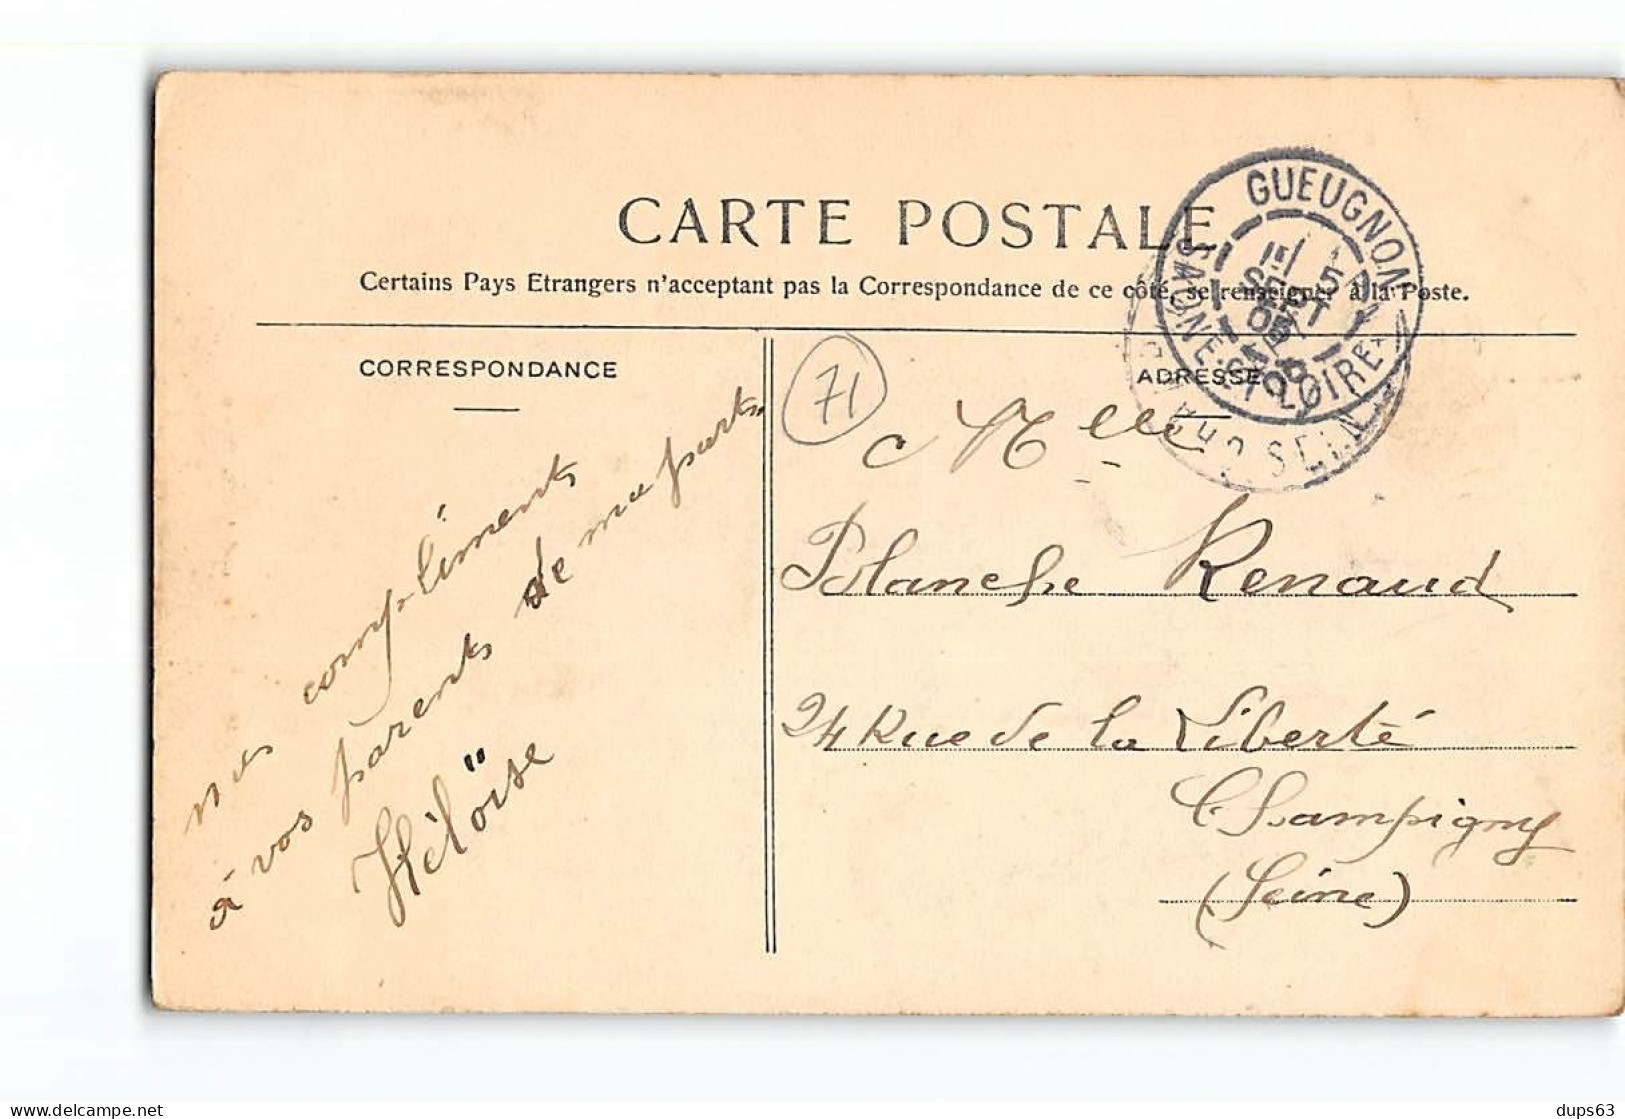 CARTE POSTALE
Certains Pays Etrangers n'acceptant pas la Correspondance de ce côté, se renseigner à la Poste.
CORRESPONDANCE
ADRESSE
GUEUGNON
SAONE-ET-LOIRE
SEPT
05
SEINE
71
mes compliments
à vos parents de ma part
Héloïse
Melle
Blanche Renaud
24 Rue de la Liberté
Champigny
(Seine)
dups63